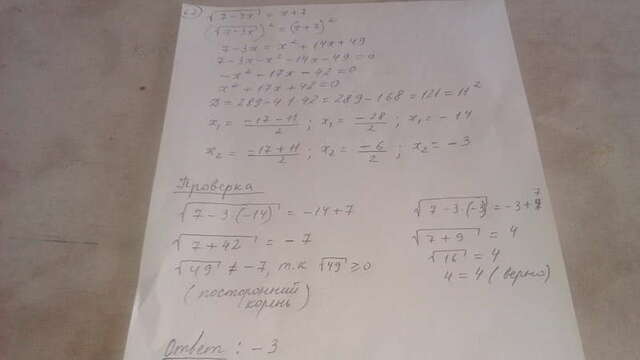 √(7-3x) = x+7
(√(7-3x))² = (x+7)²
7-3x = x²+14x+49
7-3x-x²-14x-49=0
-x²-17x-42=0
x²+17x+42=0
D=289-4·1·42=289-168=121=11²
x₁ = (-17-11)/2 ; x₁ = -28/2 ; x₁ = -14
x₂ = (-17+11)/2 ; x₂ = -6/2 ; x₂ = -3
Проверка
√(7-3·(-14)) = -14+7
√(7+42) = -7
√49 ≠ -7, т.к √49 ≥0
(посторонний
корень)
√(7-3·(-3)) = -3+7
√(7+9) = 4
√16 = 4
4=4 (верно)
Ответ: -3